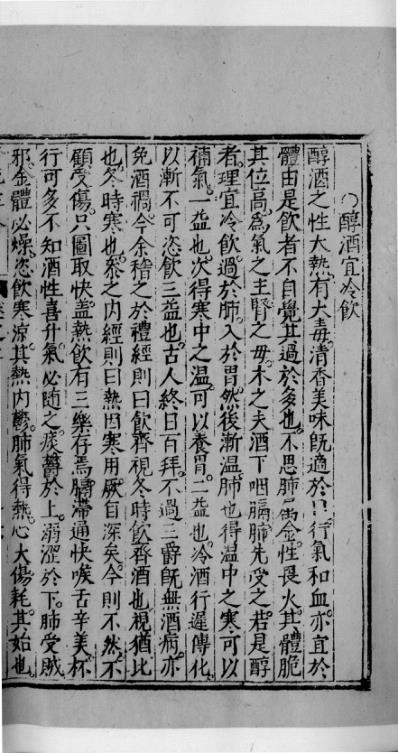 醇酒宜冷飲
醇酒之性大熱有大毒清香美味旣適於口行氣和血亦宜於
體由是飲者不自覺其過於多也不思肺屬金性畏火其體脆
其位高爲氣之主腎之毋木之夫酒下咽膈肺先受之若是醇
者理宜冷飲過於肺入於胃然後漸温肺也得温中之寒可以
補氣一益也次得寒中之温可以養胃二益也冷酒行遲傳化
以漸不可恣飲三益也古人終日百拜不過三爵旣無酒病亦
免酒禍今余稽之於禮經則曰飲齊視冬時飲齊酒也視猶比
也冬時寒也叅之内經則曰熱因寒用厥旨深矣今則不然不
顧受傷只圖取快蓋熱飲有三樂存焉膈滯通快喉舌辛美杯
行可多不知酒性喜升氣必隨之痰鬱於上溺澀於下肺受賊
邪金體必燥恣飲寒涼其熱内鬱肺氣得熱必大傷耗其始也